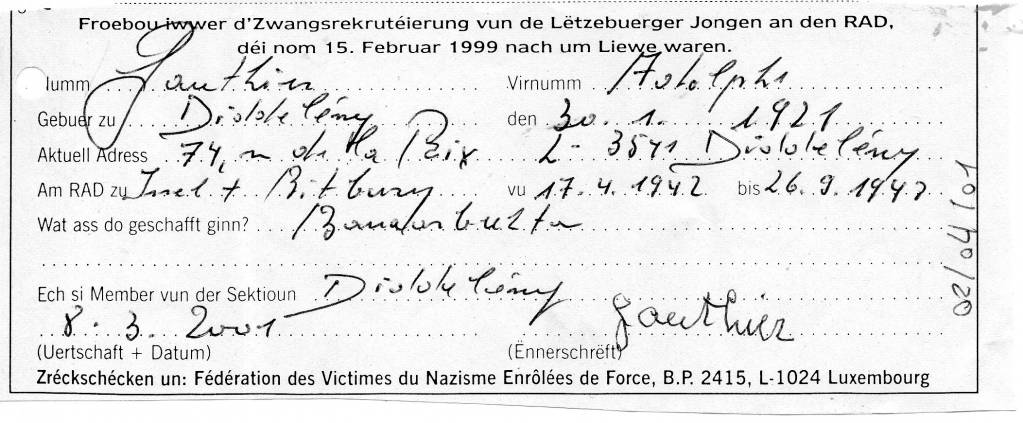 Froebou iwwer d'Zwangsrekrutéierung vun de Lëtzebuerger Jongen an den RAD,
déi nom 15. Februar 1999 nach um Liewe waren.
Numm Gauthier Virnumm Adolphe
Gebuer zu Diddeléng den 30. 1. 1921
Aktuell Adress 74, r. de la Paix L-3541 Diddeléng
Am RAD zu Insel + Bitburg vu 17.4.1942 bis 26.9.1942
Wat ass do geschafft ginn?
Ech si Member vun der Sektioun Diddeléng
8. 3. 2001 Gauthier
(Uertschaft + Datum) (Ënnerschrëft)
Zréckschécken un: Fédération des Victimes du Nazisme Enrôlées de Force, B.P. 2415, L-1024 Luxembourg
20/04/01